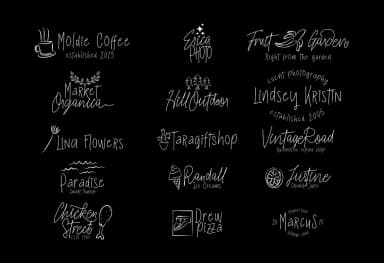 Moldie Coffee
established 2025
Erica
PHOTO
Fruit Garden
Right from the garden
Market
Organica
Hill Outdoor
event photography
Lindsey Kristin
established 2005
Lina Flowers
Taragiftshop
VintageRoad
Paradise
Randall
Ice Creams
Justine
Chicken
Street
Drew
pizza
Marcus